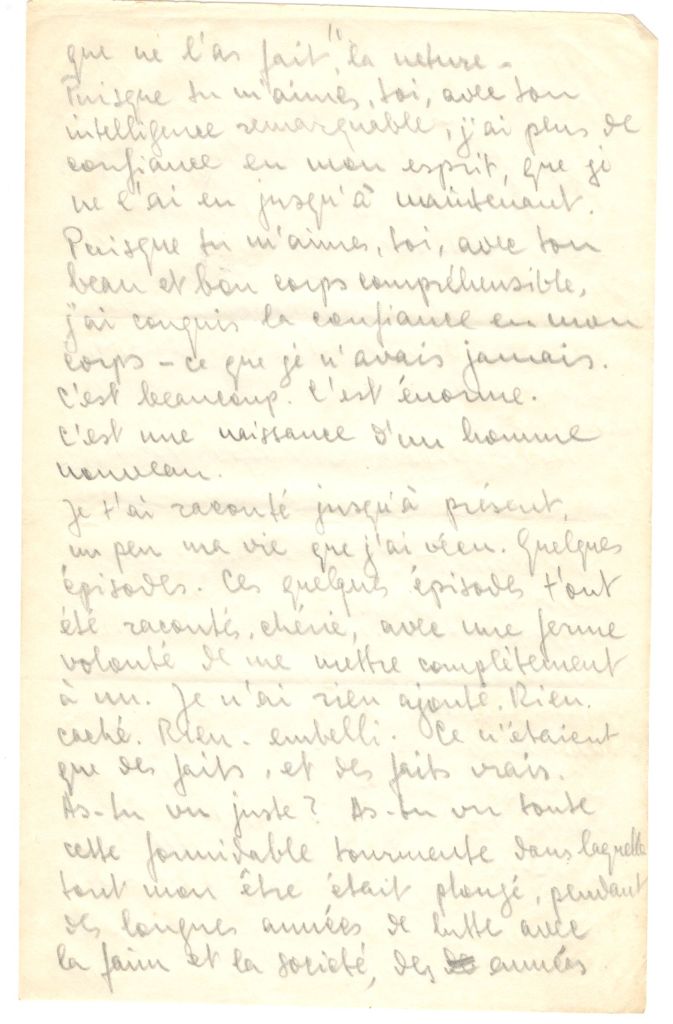 que ne l'as fait "la neture -
Puisque tu m'aimes, toi, avec ton
intelligence remarquable, j'ai plus de
confiance en mon esprit, que je
ne l'ai eu jusqu'à maintenant.
Puisque tu m'aimes, toi, avec ton
beau et bon corps compréhensible,
j'ai conquis la confiance en mon
corps - ce que je n'avais jamais.
C'est beaucoup. C'est énorme.
C'est une naissance d'un homme
nouveau.
Je t'ai raconté jusqu'à présent,
un peu ma vie que j'ai vécu. Quelques
épisodes. Ces quelques épisodes t'ont
été racontés, chérie, avec une ferme
volonté de me mettre complètement
à nu. Je n'ai rien ajouté. Rien.
caché. Rien. embelli. Ce n'étaient
que des faits, et des faits vrais.
As-tu vu juste? As-tu vu toute
cette formidable tourmente dans laquelle
tout mon être était plongé, pendant
des longues années de lutte avec
la faim et la société, des années